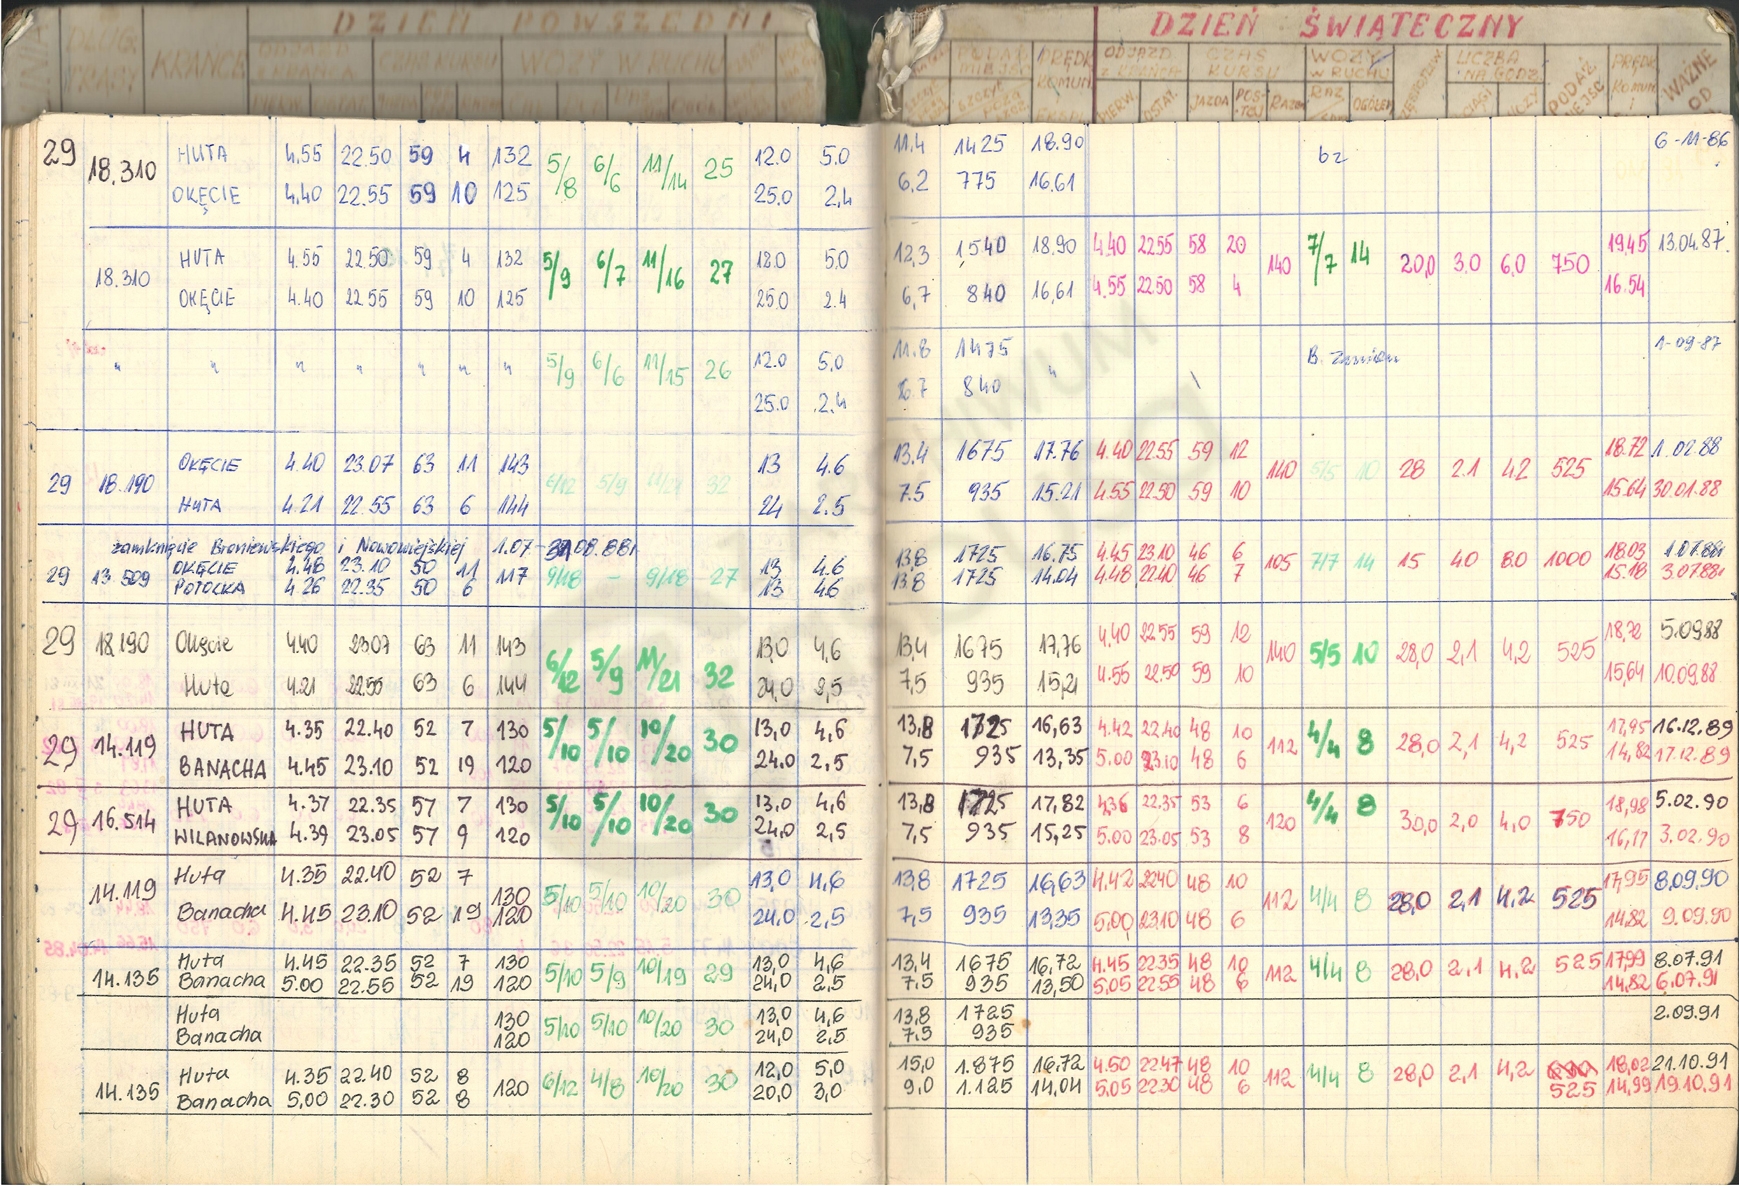 DZIEŃ POWSZEDNI
DZIEŃ ŚWIĄTECZNY
DŁUG. TRASY KRAŃCE ODJAZD Z KRAŃCA CZAS KURSU WOZY W RUCHU
PODAŻ MIEJSC PRĘDK. KOMUN. ODJAZD Z KRAŃCA CZAS KURSU WOZY W RUCHU LICZBA NA GODZ. PODAŻ MIEJSC PRĘDK. KOMUN. WAŻNE OD
PIERW. OSTAT. JAZDA POSTÓJ RAZEM OGÓŁEM
29 18.310 HUTA 4.55 22.50 59 4 132 5/8 6/6 11/14 25 12.0 5.0 11.4 1425 18.90 bz 6-11-86
OKĘCIE 4.40 22.55 59 10 125 25.0 2.4 6,2 775 16.61
18.310 HUTA 4.55 22.50 59 4 132 5/9 6/7 11/16 27 5.0 12,3 1540 18.90 4.40 22.55 58 20 140 7/7 14 20,0 3.0 6,0 750 19.45 13.04.87.
OKĘCIE 4.40 22.55 59 10 125 25.0 2.4 6,7 840 16,61 4.55 22.50 58 4 16.54
" " " " " " " 5/9 6/6 11/15 26 12.0 5,0 11.8 1475 " B. zmian 1-09-87
25.0 2.4 6.7 840
29 18.190 OKĘCIE 4.40 23.07 63 11 143 6/12 5/9 11/21 32 13 4.6 13.4 1675 17.76 4.40 22.55 59 12 140 5/5 10 28 2.1 4.2 525 18.72 1.02.88
HUTA 4.21 22.55 63 6 144 24 2.5 7.5 935 15.21 4.55 22.50 59 10 15.64 30.01.88
zamknięcie Broniewskiego i Nowowiejskiej 1.07-
29 13.509 OKĘCIE 4.48 23.10 50 11 117 9/18 - 9/18 27 13 4.6 13,8 1725 16,75 4.45 23.10 46 6 105 7/7 14 15 4.0 8.0 1000 18.03 1.07.88
POTOCKA 4.26 22.35 50 6 13 4.6 13.8 1725 14.04 4.48 22.40 46 7 15.18 3.07.88
29 18.190 Okęcie 4.40 2307 63 11 143 6/12 5/9 11/21 32 13,0 4,6 13,4 1675 17,76 4,40 22.55 59 12 140 5/5 10 28,0 2,1 4,2 525 18,72 5.09.88
Huta 4.21 22.55 63 6 144 24,0 2,5 7,5 935 15,21 4.55 22.50 59 10 15,64 10.09.88
29 14.119 HUTA 4.35 22.40 52 7 130 5/10 5/10 10/20 30 13,0 4,6 13,8 1725 16,63 4.42 22.40 48 10 112 4/4 8 28,0 2,1 4,2 525 17,95 16.12.89
BANACHA 4.45 23.10 52 19 120 24.0 2,5 7,5 935 13,35 5.00 23.10 48 6 14,82 17.12.89
29 16.514 HUTA 4.37 22.35 57 7 130 5/10 5/10 10/20 30 13,0 4,6 13,8 1725 17,82 4,36 22.35 53 6 120 4/4 8 30,0 2,0 4,0 750 18,98 5.02.90
WILANOWSKA 4.39 23.05 57 9 120 24,0 2,5 7,5 935 15,25 5.00 23.05 53 8 16,17 3.02.90
14.119 Huta 4.35 22.40 52 7 130 5/10 5/10 10/20 30 13,0 4,6 13,8 1725 16,63 4.42 2240 48 10 112 4/4 8 28,0 2,1 4,2 525 17,95 8.09.90
Banacha 4.45 23.10 52 19 120 24,0 2,5 7,5 935 13.35 5,00 23.10 48 6 14.82 9.09.90
14.135 Huta 4.45 22.35 52 7 130 5/10 5/9 10/19 29 13,0 4,6 13,4 1675 16,72 4.45 22.35 48 10 112 4/4 8 28,0 2,1 4,2 525 17,99 8.07.91
Banacha 5.00 22.55 52 19 120 24,0 2,5 7,5 935 13,50 5,05 22.55 48 6 14,82 6.07.91
Huta 130 5/10 5/10 10/20 30 13,0 4,6 13,8 1725 2.09.91
Banacha 120 24,0 2,5 7,5 935
14.135 Huta 4.35 22.40 52 8 120 6/12 4/8 10/20 30 12,0 5,0 15,0 1.875 16,72 4.50 22.47 48 10 112 4/4 8 28,0 2,1 4,2 18,02 21.10.91
Banacha 5,00 22.30 52 8 20,0 3,0 9,0 1.125 14,04 5,05 22.30 48 6 525 14,99 19.10.91
ARCHIWUM